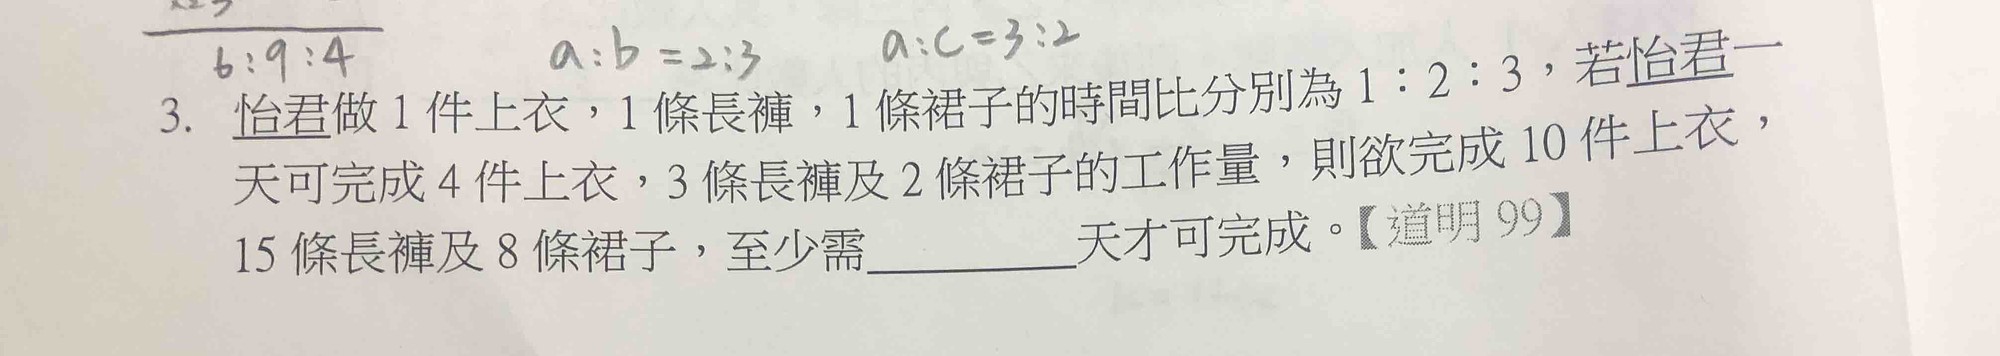 6:9:4
a:b=2:3 a:c=3:2
3. 怡君做 1 件上衣，1 條長褲，1 條裙子的時間比分別為 1：2：3，若怡君一
天可完成 4 件上衣，3 條長褲及 2 條裙子的工作量，則欲完成 10 件上衣，
15 條長褲及 8 條裙子，至少需________天才可完成。【道明 99】